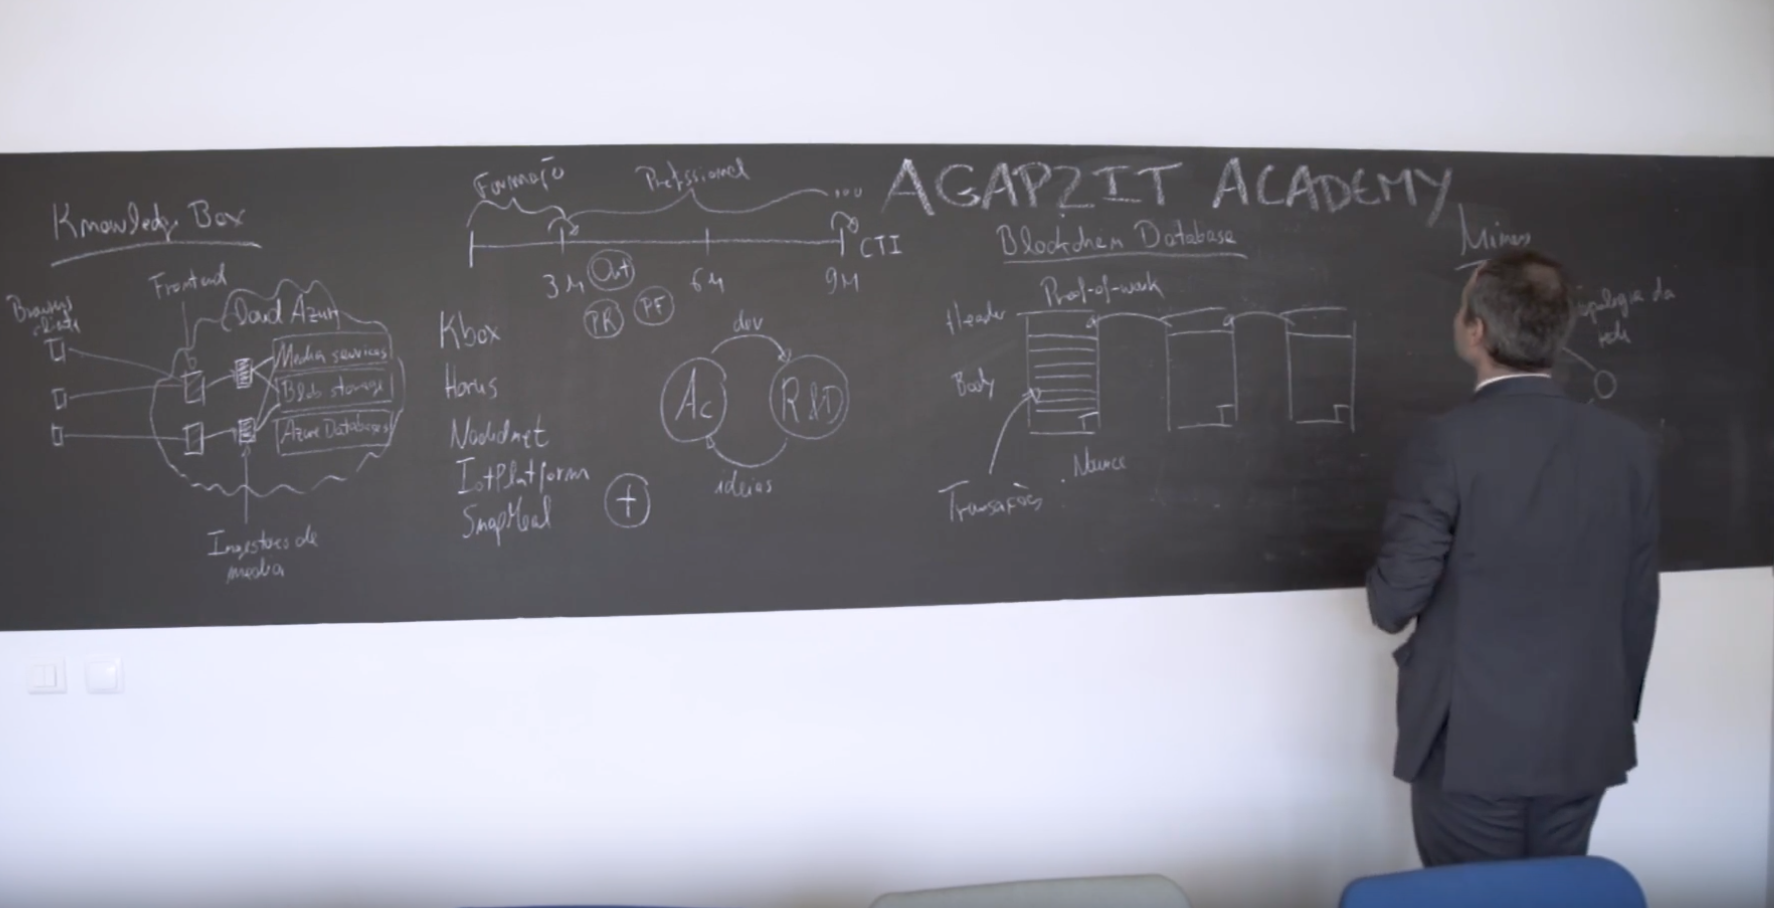 AGAP2IT ACADEMY
Knowledge Box
Frontend
Browsers
cliente
Cloud Azure
Media services
Blob storage
Azure Databases
Ingestores de
media
Formação
Profissional
...
3M
6M
9M
CTI
Out
PR
PF
Kbox
Horus
Nockdnet
IotPlatform
SnapMeal
+
dev
Ac
R&D
ideias
Blockchain Database
Proof-of-work
Header
Body
Nounce
Transações
Miners
topologia da
rede